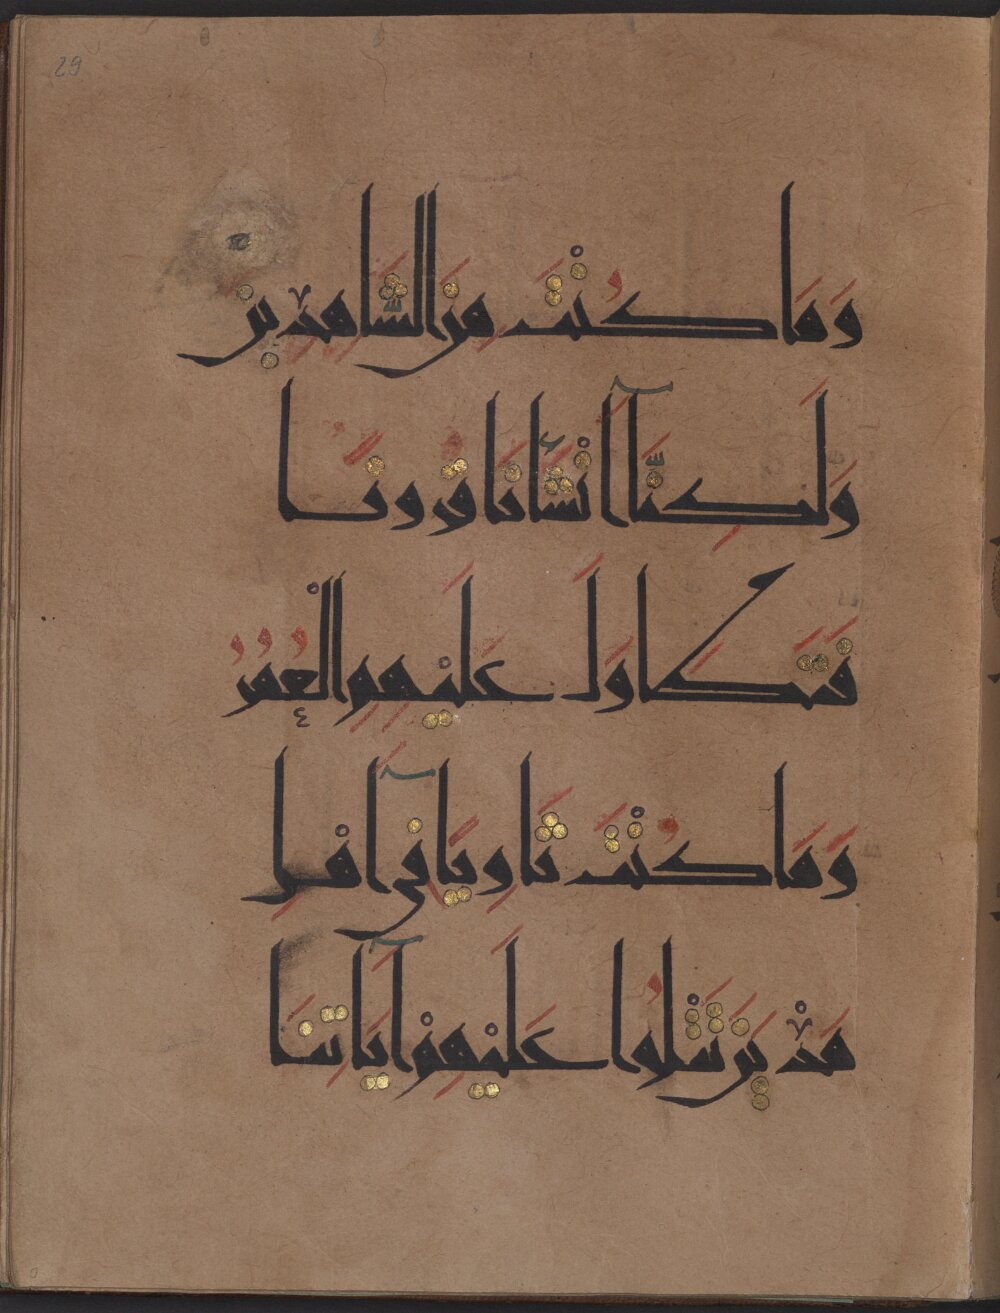 29
وَمَا كُنْتَ مِنَ الشَّاهِدِينَ
وَلَكِنَّا أَنْشَأْنَا قُرُونًا
فَتَطَاوَلَ عَلَيْهِمِ الْعُمُرُ
وَمَا كُنْتَ ثَاوِيًا فِي أَهْلِ
مَدْيَنَ تَتْلُوا عَلَيْهِمْ آيَاتِنَا